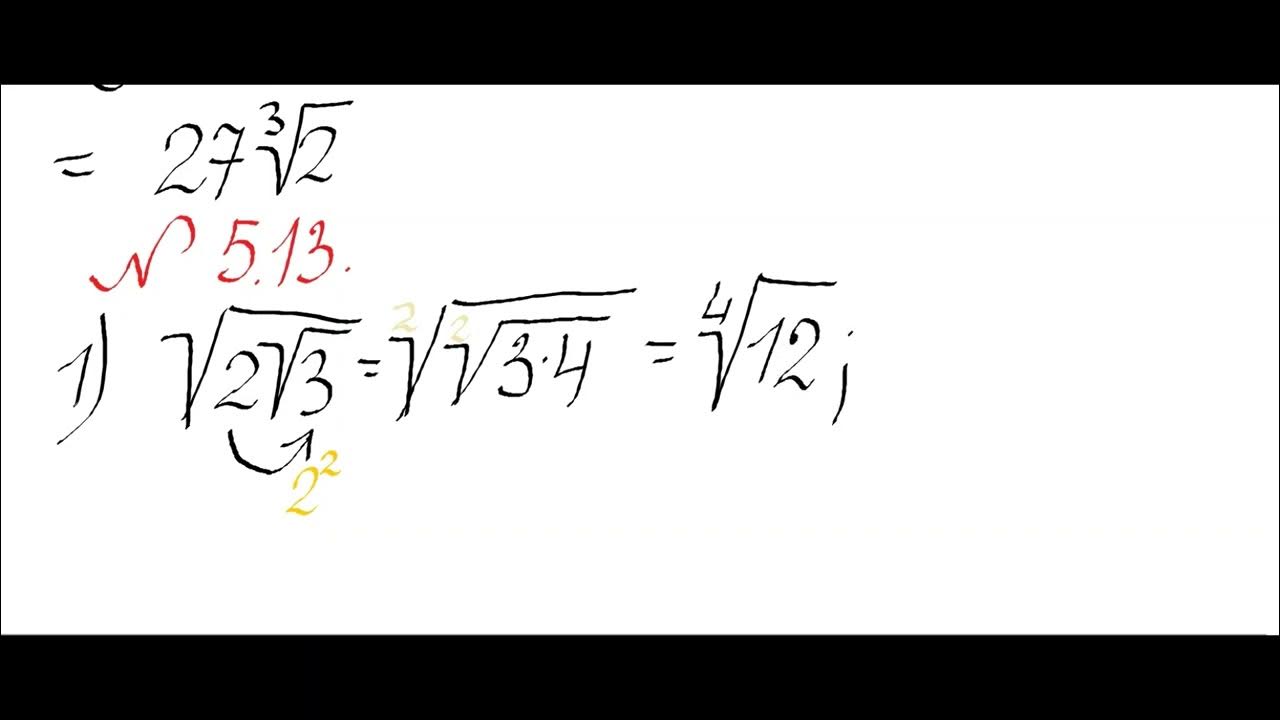 = 27∛2
№ 5.13.
1) √(2√3) = ²√(²√(3·4)) = ⁴√12;
2²